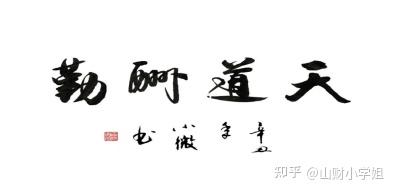 天道酬勤
辛丑年 小微书
知乎 @山财小学姐